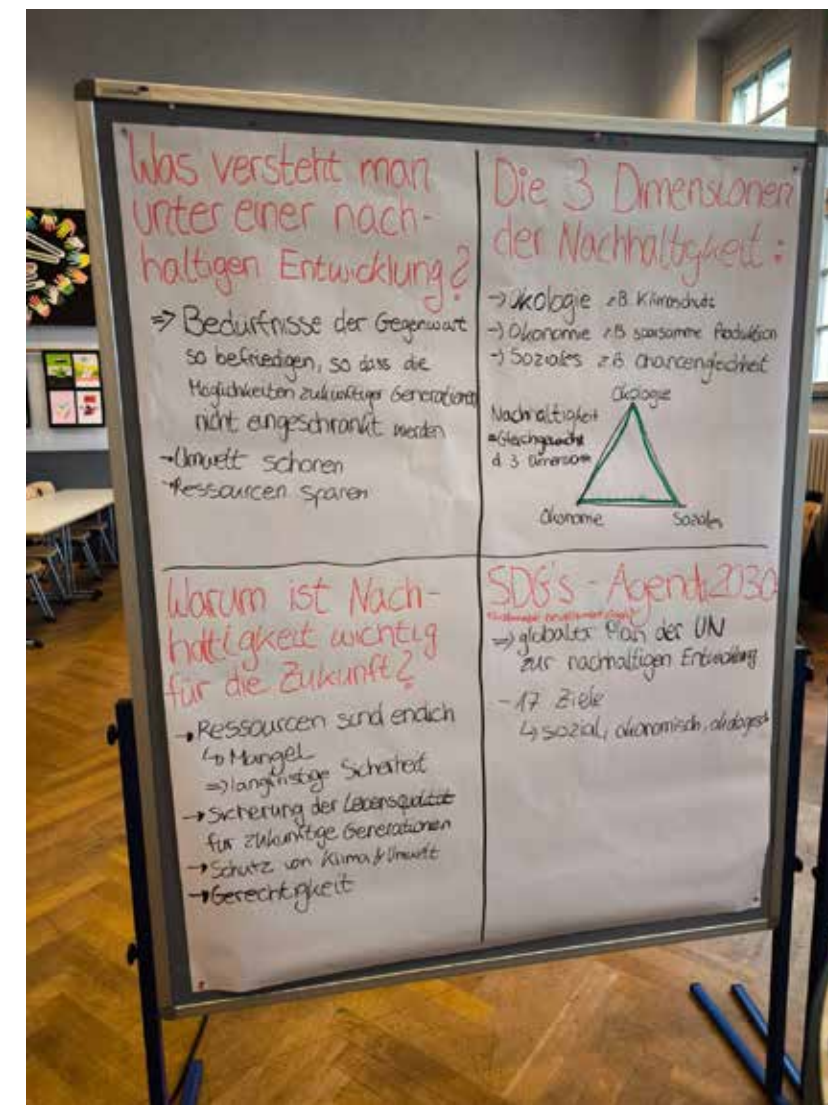 Was versteht man
unter einer nach-
haltigen Entwicklung?
=> Bedürfnisse der Gegenwart
so befriedigen, so dass die
Möglichkeiten zukünftiger Generationen
nicht eingeschränkt werden
→ Umwelt schonen
→ Ressourcen sparen
Die 3 Dimensionen
der Nachhaltigkeit:
→ Ökologie z.B. Klimaschutz
→ Ökonomie z.B. sparsame Produktion
→ Soziales z.B. Chancengleichheit
Ökologie
Nachhaltigkeit
= Gleichgewicht
d. 3 Dimensionen
Ökonomie Soziales
Warum ist Nach-
haltigkeit wichtig
für die Zukunft?
→ Ressourcen sind endlich
↳ Mangel
=> langfristige Sicherheit
→ Sicherung der Lebensqualität
für zukünftige Generationen
→ Schutz von Klima & Umwelt
→ Gerechtigkeit
SDG's - Agenda 2030
=> globaler Plan der UN
zur nachhaltigen Entwicklung
- 17 Ziele
↳ sozial, ökonomisch, ökologisch